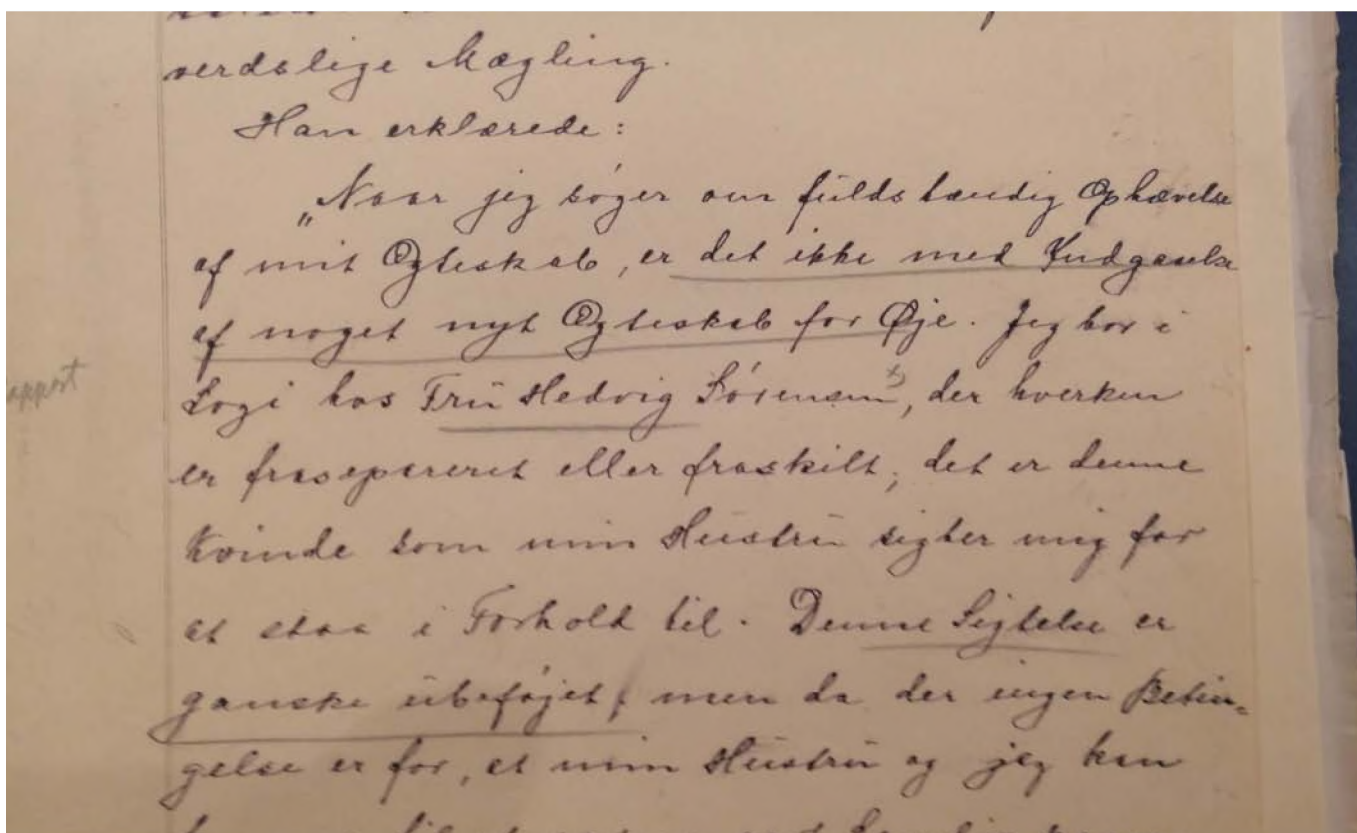 verdslige Mægling.
Han erklærede:
„Naar jeg søger om fuldstændig Ophævelse
af mit Ægteskab, er det ikke med Indgaaelse
af noget nyt Ægteskab for Øje. Jeg bor i
Logi hos Fru Hedvig Sørensen x), der hverken
er frasepareret eller fraskilt; det er denne
Kvinde som min Hustru sigter mig for
at staa i Forhold til. Denne Sigtelse er
ganske ubeføjet, men da der ingen Betin-
gelse er for, at min Hustru og jeg kan